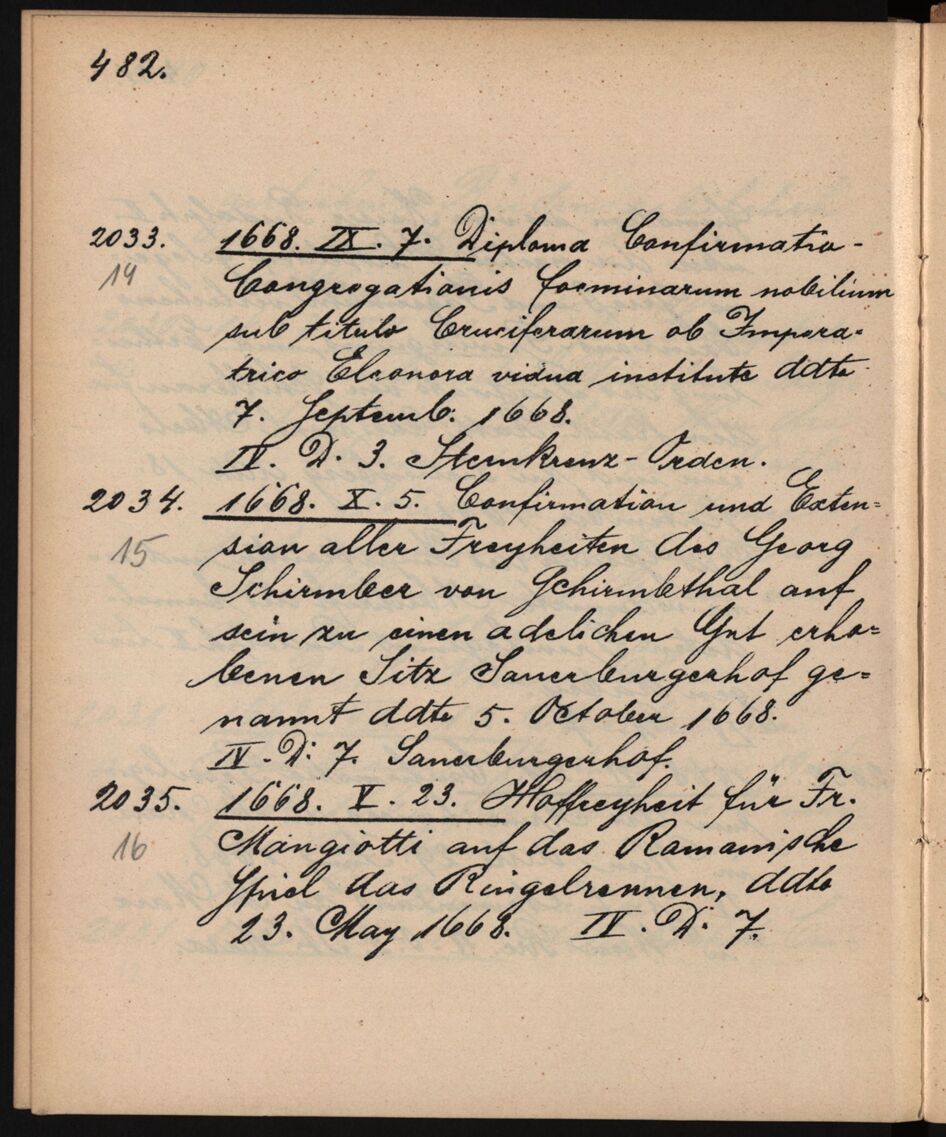 482.
2033. 1668. IX. 7. Diploma Confirmatio-
14 Congregationis foeminarum nobilium
sub titulo Cruciferarum ob Impera=
trice Eleonora vidua institute ddto
7. Septemb. 1668.
IV. D. 3. Sternkreuz-Orden.
2034. 1668. X. 5. Confirmation und Exten=
15 sion aller Freyheiten des Georg
Schirmber von Schirmbthal auf
sein zu einen adelichen Gut erho=
benen Sitz Sauerburgerhof ge=
nannt ddto 5. October 1668.
IV. D. 7. Sauerburgerhof.
2035. 1668. V. 23. Hoffreyheit für Fr.
16 Mangiotti auf das Romanische
Spiel das Ringelrennen, ddto
23. May 1668. IV. D. 7.